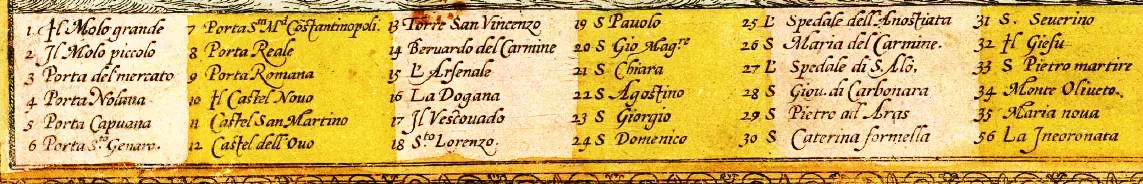 1 Il Molo grande
2 Il Molo piccolo
3 Porta del mercato
4 Porta Nolana
5 Porta Capuana
6 Porta S.to Genaro.
7 Porta S.ta M.a d Costantinopoli.
8 Porta Reale
9 Porta Romana
10 Il Castel Novo
11 Castel San Martino
12 Castel dell'Ovo
13 Torre San Vincenzo
14 Beruardo del Carmine
15 L'Arsenale
16 La Dogana
17 Il Vescouado
18 S.to Lorenzo.
19 S Pauolo
20 S Gio Mag.re
21 S Chiara
22 S Agostino
23 S Giorgio
24 S Domenico
25 L' Spedale dell'Anostiata
26 S Maria del Carmine.
27 L' Spedale di S Alò.
28 S Giou. di Carbonara
29 S Pietro ad Aras
30 S Caterina formella
31 S. Severino
32 Il Giesu
33 S Pietro martire
34 Monte Oliueto.
35 Maria noua
56 La Incoronata